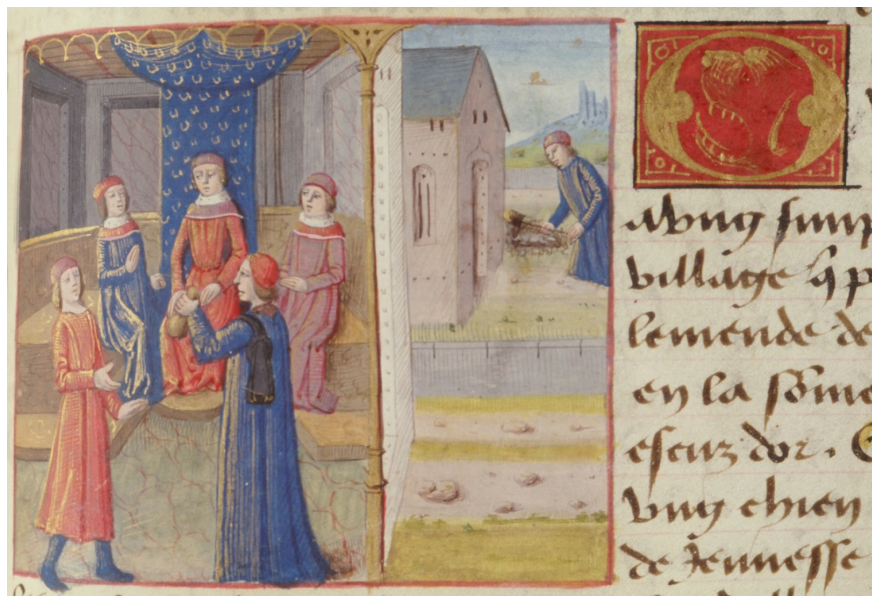 O
a vng simp
village q p
lemende de
en la sõme
escuz dor . C
vng chien
de Jeunesse